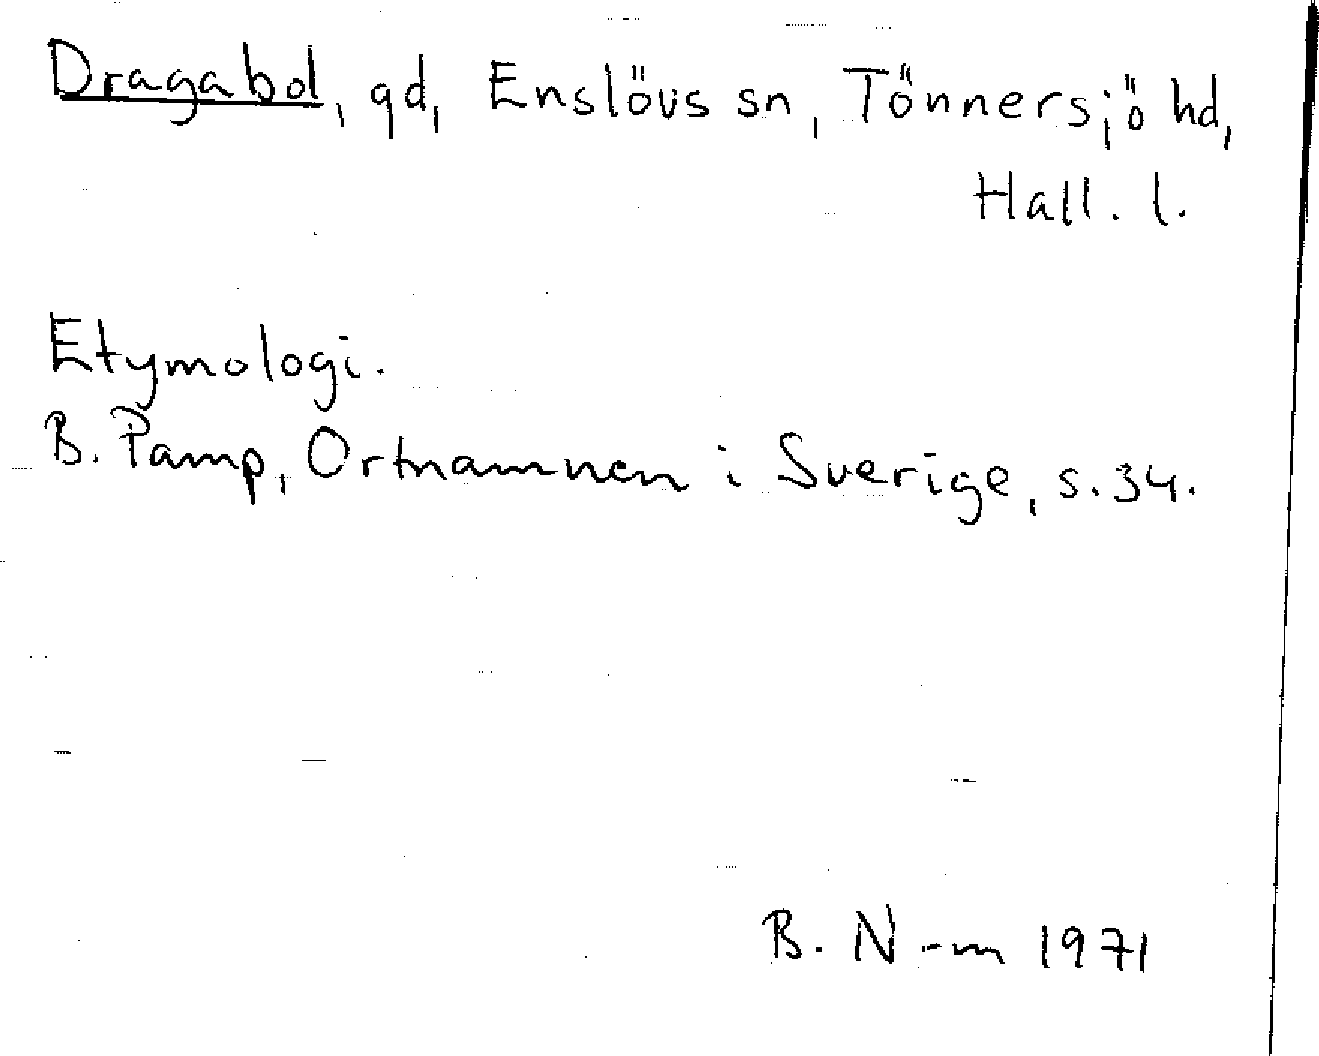 Dragabol, gd, Enslövs sn, Tönnersjö hd,
Hall. l.
Etymologi.
B. Pamp, Ortnamnen i Sverige, s. 34.
B. N-m 1971